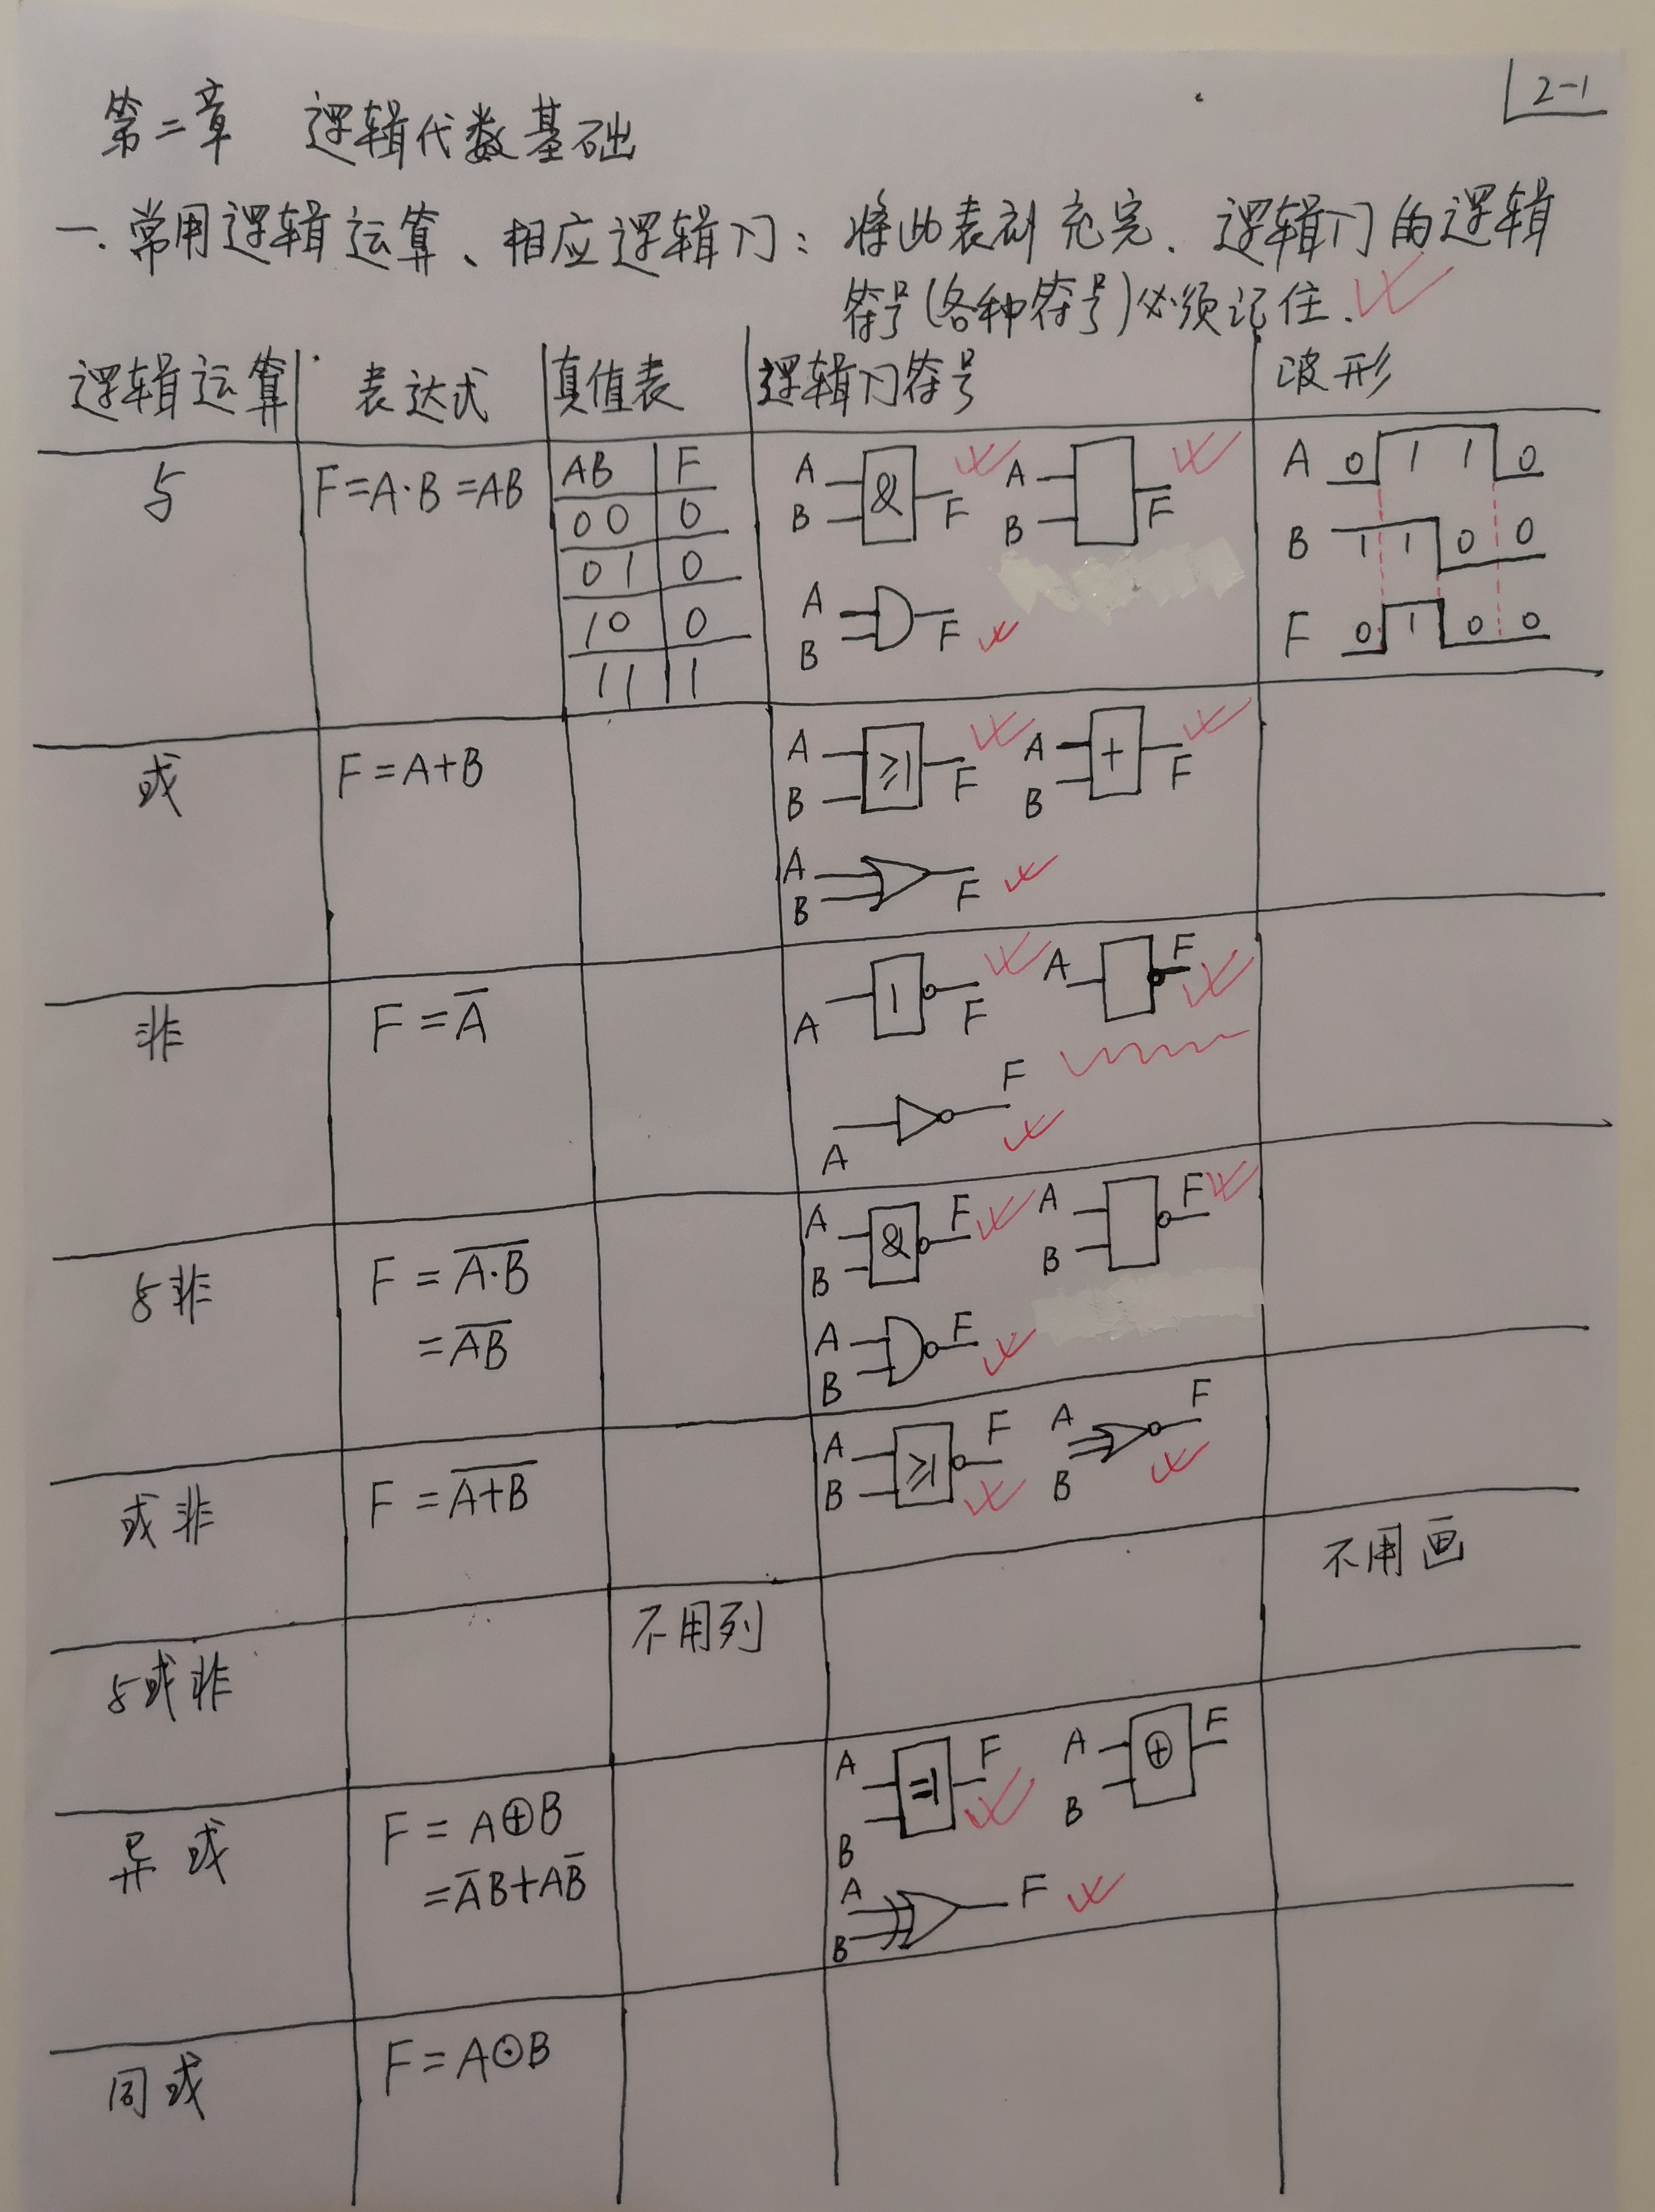 2-1
第二章 逻辑代数基础
一.常用逻辑运算、相应逻辑门：将此表补充完.逻辑门的逻辑
符号(各种符号)必须记住.
逻辑运算 表达式 真值表 逻辑门符号 波形
与 F=A·B=AB
AB F
00 0
01 0
10 0
11 1
A B & F
A B F
A B F
A 0 1 1 0
B 1 1 0 0
F 0 1 0 0
或 F=A+B
A B ≥1 F
A B + F
A B F
非 F=A̅
A 1 F
A F
A F
与非 F=A̅·̅B̅
=A̅B̅
A B & F
A B F
A B F
或非 F=A̅+̅B̅
A B ≥1 F
A B F
与或非 不用列 不用画
异或 F=A⊕B
=A̅B+AB̅
A B =1 F
A B ⊕ F
A B F
同或 F=A⊙B